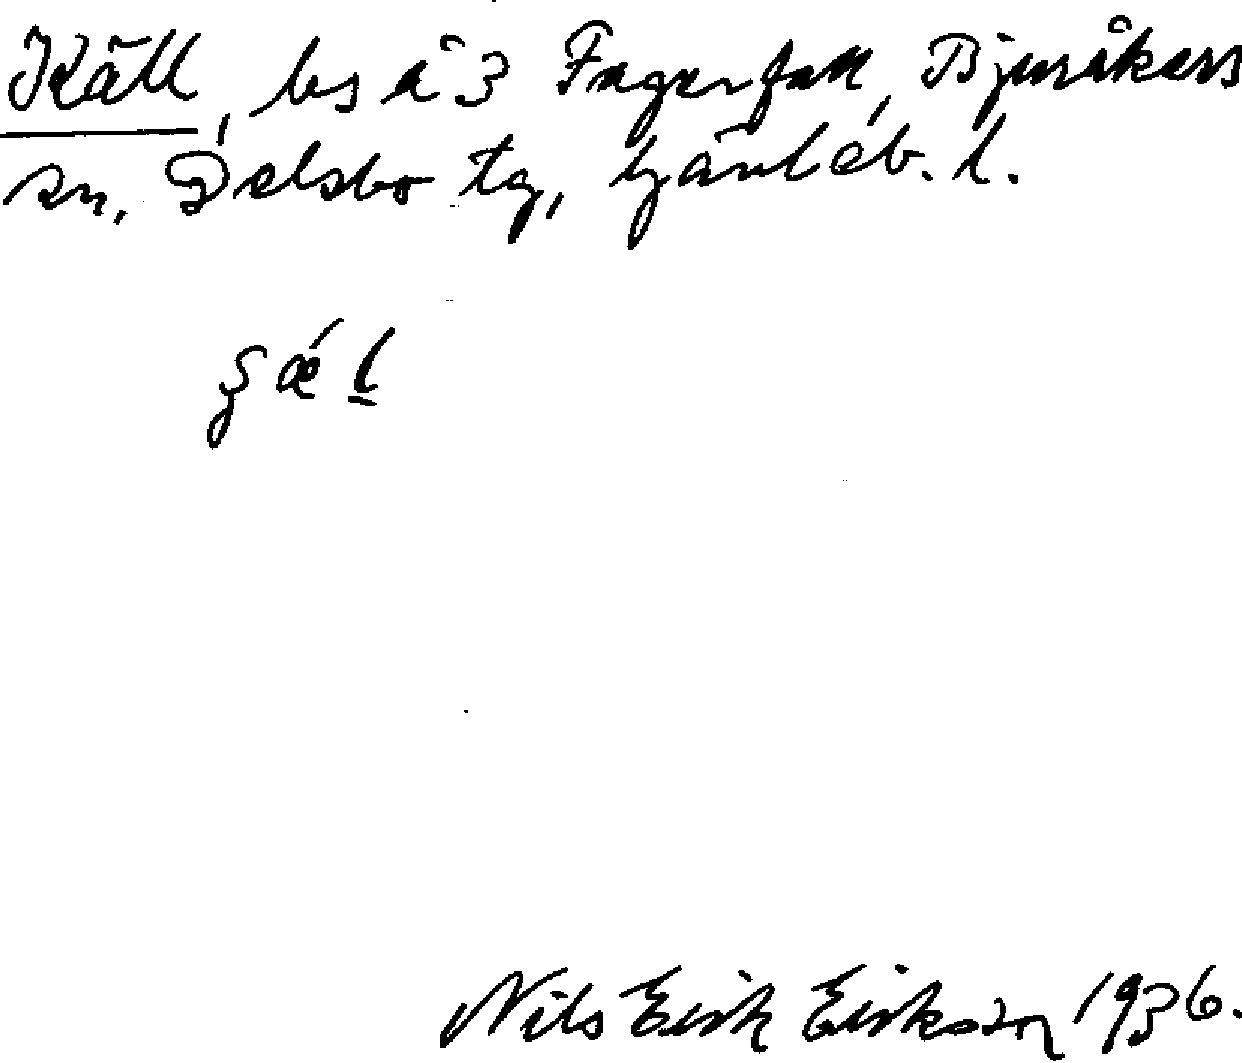 Käll, bs å 3 Fagernäs, Bjuråkers
sn, Delsbo tg, Gävleb. l.
Nils Erik Erikson 1936.